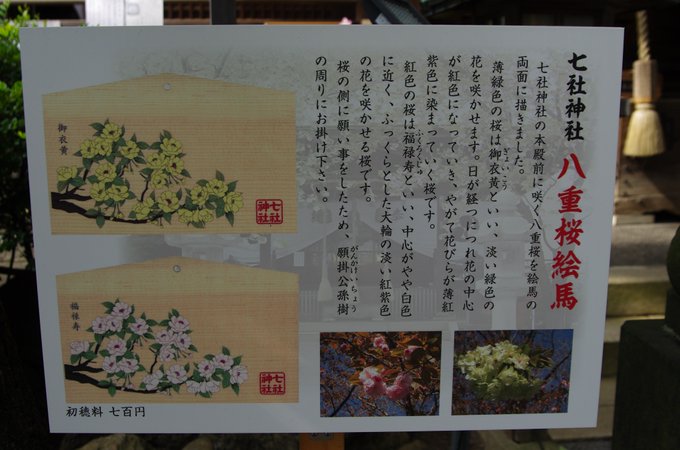 七社神社 八重桜絵馬
七社神社の本殿前に咲く八重桜を絵馬の
両面に描きました。
薄緑色の桜は御衣黄といい、淡い緑色の
ぎょいこう
花を咲かせます。日が経つにつれ花の中心
が紅色になっていき、やがて花びらが薄紅
紫色に染まっていく桜です。
紅色の桜は福禄寿といい、中心がやや白色
ふくろくじゅ
に近く、ふっくらとした大輪の淡い紅紫色
の花を咲かせる桜です。
桜の側に願い事をしたため、願掛公孫樹
がんかけいちょう
の周りにお掛け下さい。
御衣黄
七社
神社
福禄寿
七社
神社
初穂料 七百円